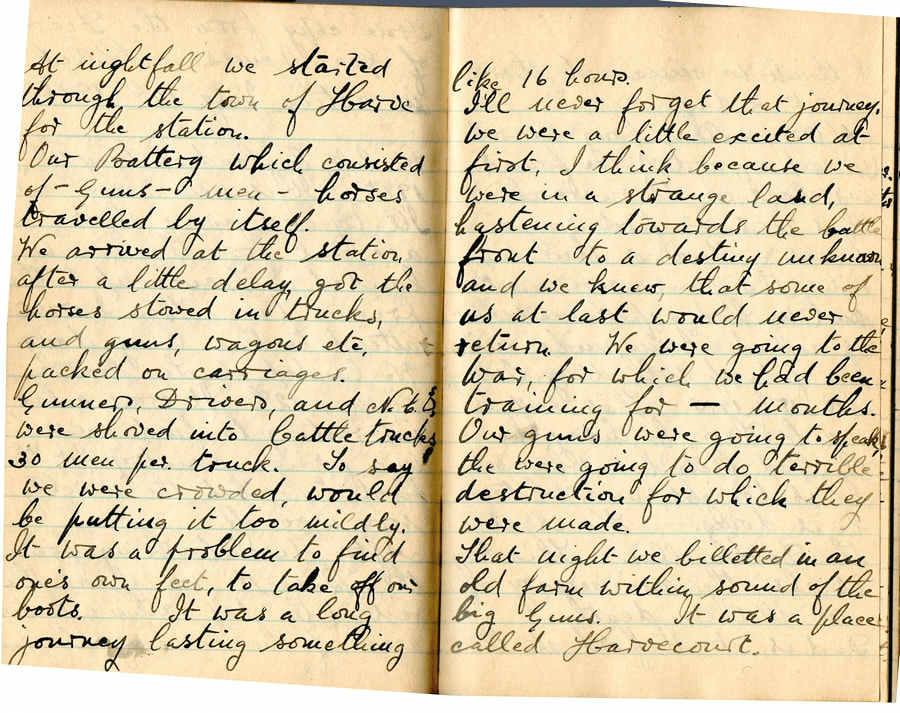 At nightfall we started
through the town of Harve
for the station.
Our Battery which consisted
of - Guns - men - horses
travelled by itself.
We arrived at the station
after a little delay, got the
horses stowed in trucks,
and guns, wagons etc,
packed on carriages.
Gunners, Drivers, and N.C.O's
were shoved into Cattle trucks
30 men per. truck. To say
we were crowded, would
be putting it too mildly.
It was a problem to find
one's own feet, to take off our
boots. It was a long
journey lasting something
like 16 hours.
I'll never forget that journey.
We were a little excited at
first, I think because we
were in a strange land,
hastening towards the battle
front to a destiny unknown
and we knew, that some of
us at last would never
return. We were going to the
War, for which we had been
training for — months.
Our guns were going to speak,
the were going to do terrible
destruction for which they
were made.
That night we billetted in an
old farm within sound of the
big Guns. It was a place
called Harvecourt.